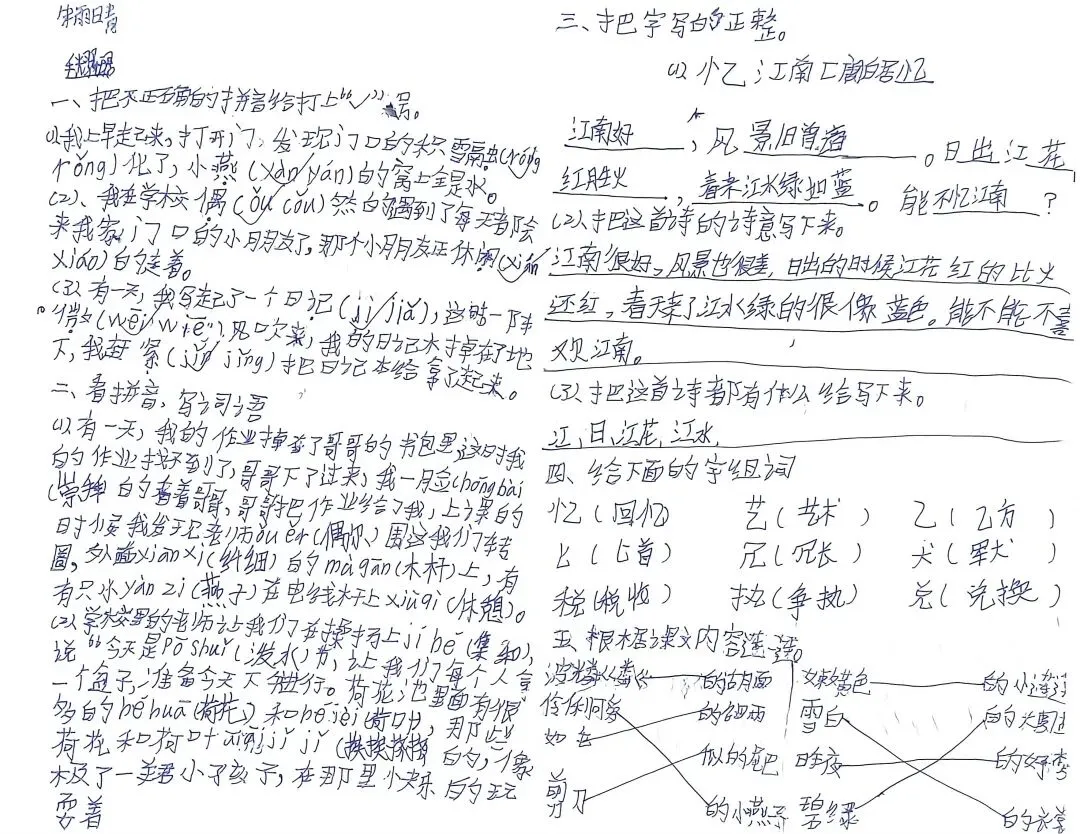 朱雨晴
一、把不正确的拼音给打上“✓”号。
(1)我上早起来，打开门，发现门口的积雪融(róng
rǒng)化了，小燕(xàn/yán)的窝上全是水。
(2)、我在学校偶(ǒu cǒu)然的遇到了每天都会
来我家门口的小朋友了，那个小朋友正休闲(xián
xiáo)的走着。
(3)、有一天，我写起了一个日记(jì/jià)，这时一阵
微(wēi/wiē)风吹来，我的日记本掉在了地
下，我赶紧(jǐn jǐng)把日记本给拿了起来。
二、看拼音，写词语
(1)有一天，我的作业掉在了哥哥的书包里这时我
的作业找不到了，哥哥下了过来，我一脸chóngbài
(崇拜)的看着哥哥，哥哥把作业给了我，上课的
时候我发现老师ǒu ěr(偶尔)围这我们转
圈，外面xiān xì(纤细)的mù gān(木杆)上，有
有只小yàn zi(燕子)在电线杆上xiūqì(休憩)。
(2)学校里的老师让我们在操场上jí hé(集和)，
说“今天是Pō shuǐ(泼水)节，让我们每个人拿
一个盆子，准备今天下午进行。荷花池里面有很
多的hé huā(荷花)和hé yè(荷叶)，那些
荷花和荷叶āi āi jǐ jǐ(挨挨挤挤)的，像
极了一群小孩子，在那里快乐的玩
耍着
三、把字写的正整。
(1)忆江南[唐]白居忆
江南好，风景旧曾谙。日出江花
红胜火，春来江水绿如蓝。能不忆江南？
(2)、把这首诗的诗意写下来。
江南很好，风景也很美，日出的时候江花红的比火
还红，春天来了江水绿的很像蓝色。能不能不喜
欢江南。
(3)、把这首诗都有什么给写下来。
江，日，江花，江水，
四、给下面的字组词
忆(回忆) 艺(艺术) 乙(乙方)
匕(匕首) 冗(冗长) 犬(軍犬)
税(税收) 执(争执) 兑(兑换)
五、根据课文内容连连。
波光粼粼 的湖面 嫩黄色 的小莲蓬
伶俐可爱 的细雨 雪白
如丝 似的尾巴 昨夜 的好梦
剪刀 的小燕子 碧绿 的衣裳